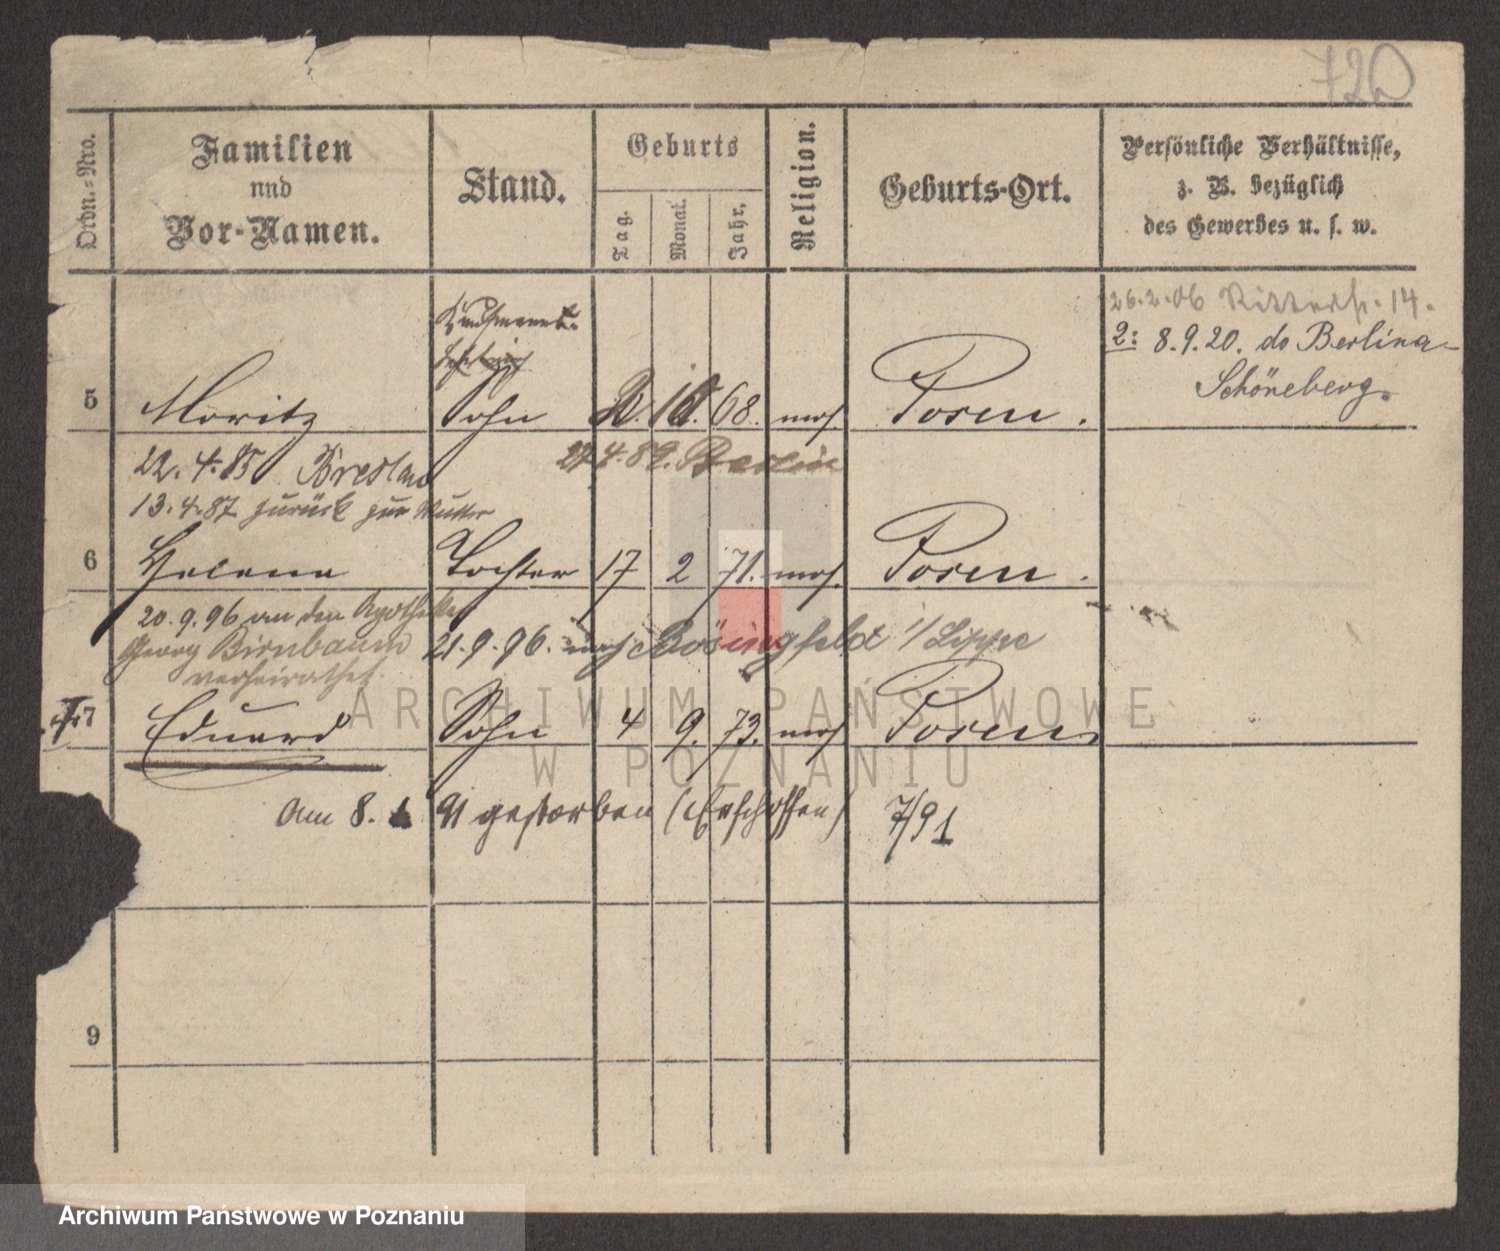 720
Ordn.-Nro.
Familien
und
Vor-Namen.
Stand.
Geburts
Tag.
Monat.
Jahr.
Religion.
Geburts-Ort.
Persönliche Verhältnisse,
z. B. bezüglich
des Gewerbes u. s. w.
26.2.06 Ritterstr. 14.
2: 8.9.20. do Berlina-
Schöneberg.
Kaufmanns-
5 Moritz Sohn 10. 68. mos. Posen.
22.4.85 Breslau 27.4.89. Berlin
13.4.87 zurück zur Mutter
6 Helena Tochter 17 2 71. mos. Posen.
20.9.96 an den Apotheker
Georg Birnbaum 21.9.96. nach Bösingfeld i/Lippe
verheirathet.
7 Eduard Sohn 4 9. 73. mos Posen
Am 8. 91 gestorben (Erschossen) 7/91
9
ARCHIWUM PAŃSTWOWE
W POZNANIU
Archiwum Państwowe w Poznaniu